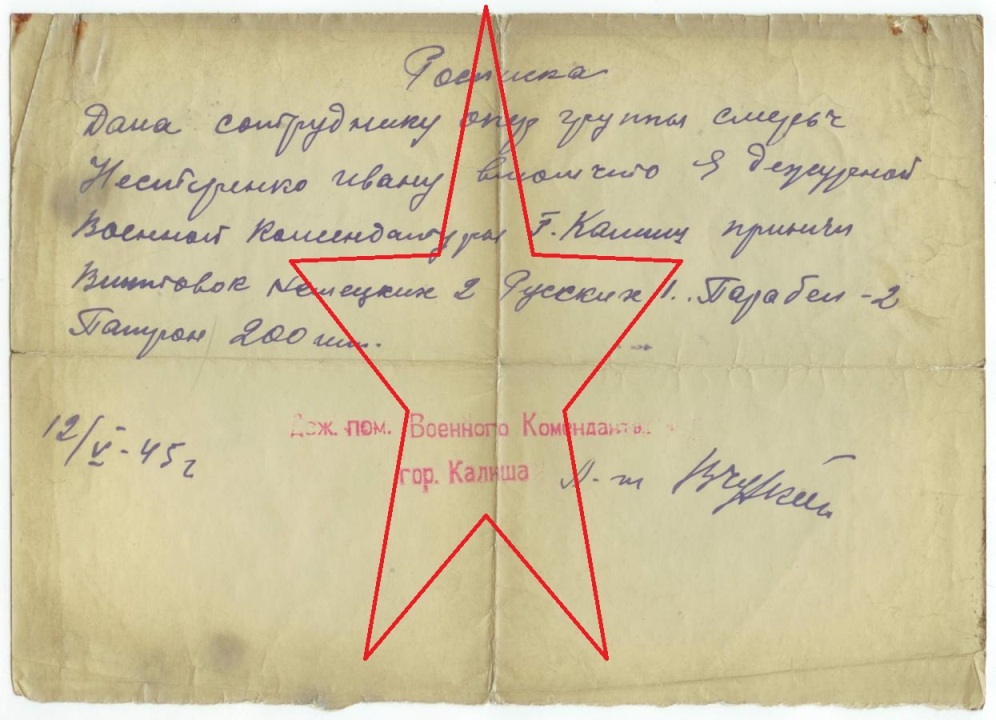 Росписка
Дана сотруднику опер группы смерьч
Неситеренко ивану втом что Я дежурной
Военной Комендатуры Г. Калиш принял
Винтовок Немецких 2 Русских 1. Парабел - 2
Патрон 200 шт.
12/V-45г
Деж. пом. Военного Коменданта
гор. Калиша
Л-т